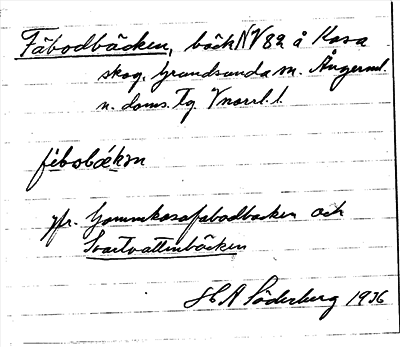 Fäbodbäcken, bäck NV82 å Kasa
skog, Grundsunda sn. Ångerml.
n. doms. Tg. Vnorrl. l.
fèbobék̬ən
jfr. Gammkasafäbodbäcken och
Svartvattenbäcken
H A Söderberg 1936